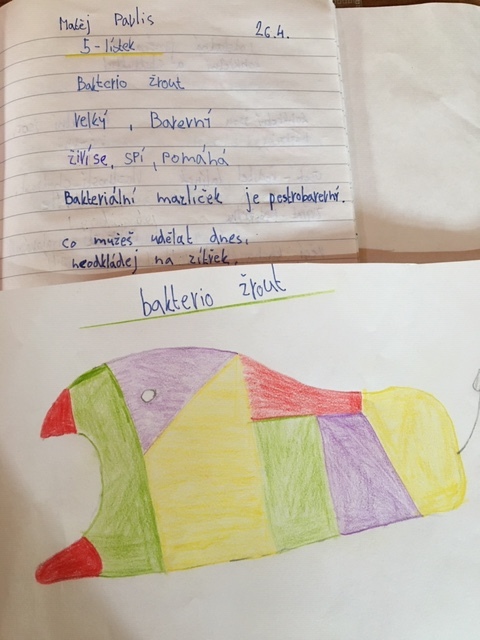 Matěj Pavlis 26.4.
5-lístek
Bakterio žrout
velký, Barevní
živí se, spí, pomáhá
Bakteriální mazlíček je pestrobarevní.
co mužeš udělat dnes,
neodkládej na zítřek.
bakterio žrout